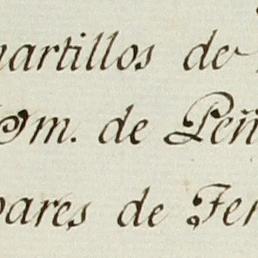 artillos de
m. de Peñ
ares de Fer